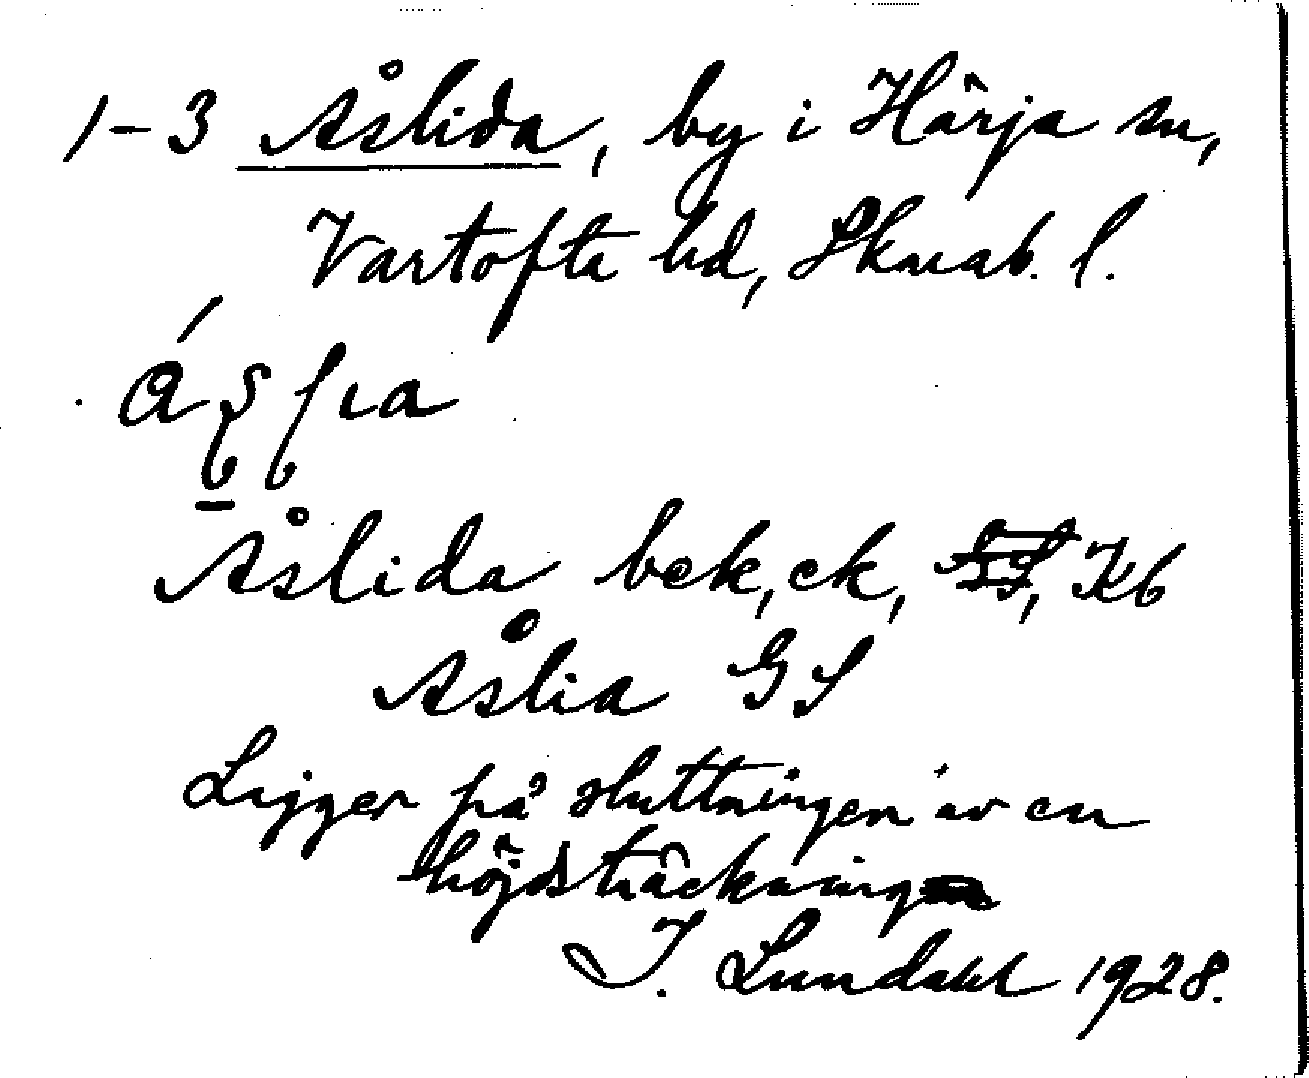 1-3 Åslida, by i Härja sn,
Vartofta hd, Skarab. l.
Åslida bek, ek, Kb
Åslia GS
Ligger på sluttningen av en
höjdsträckning
I. Lundahl 1928.